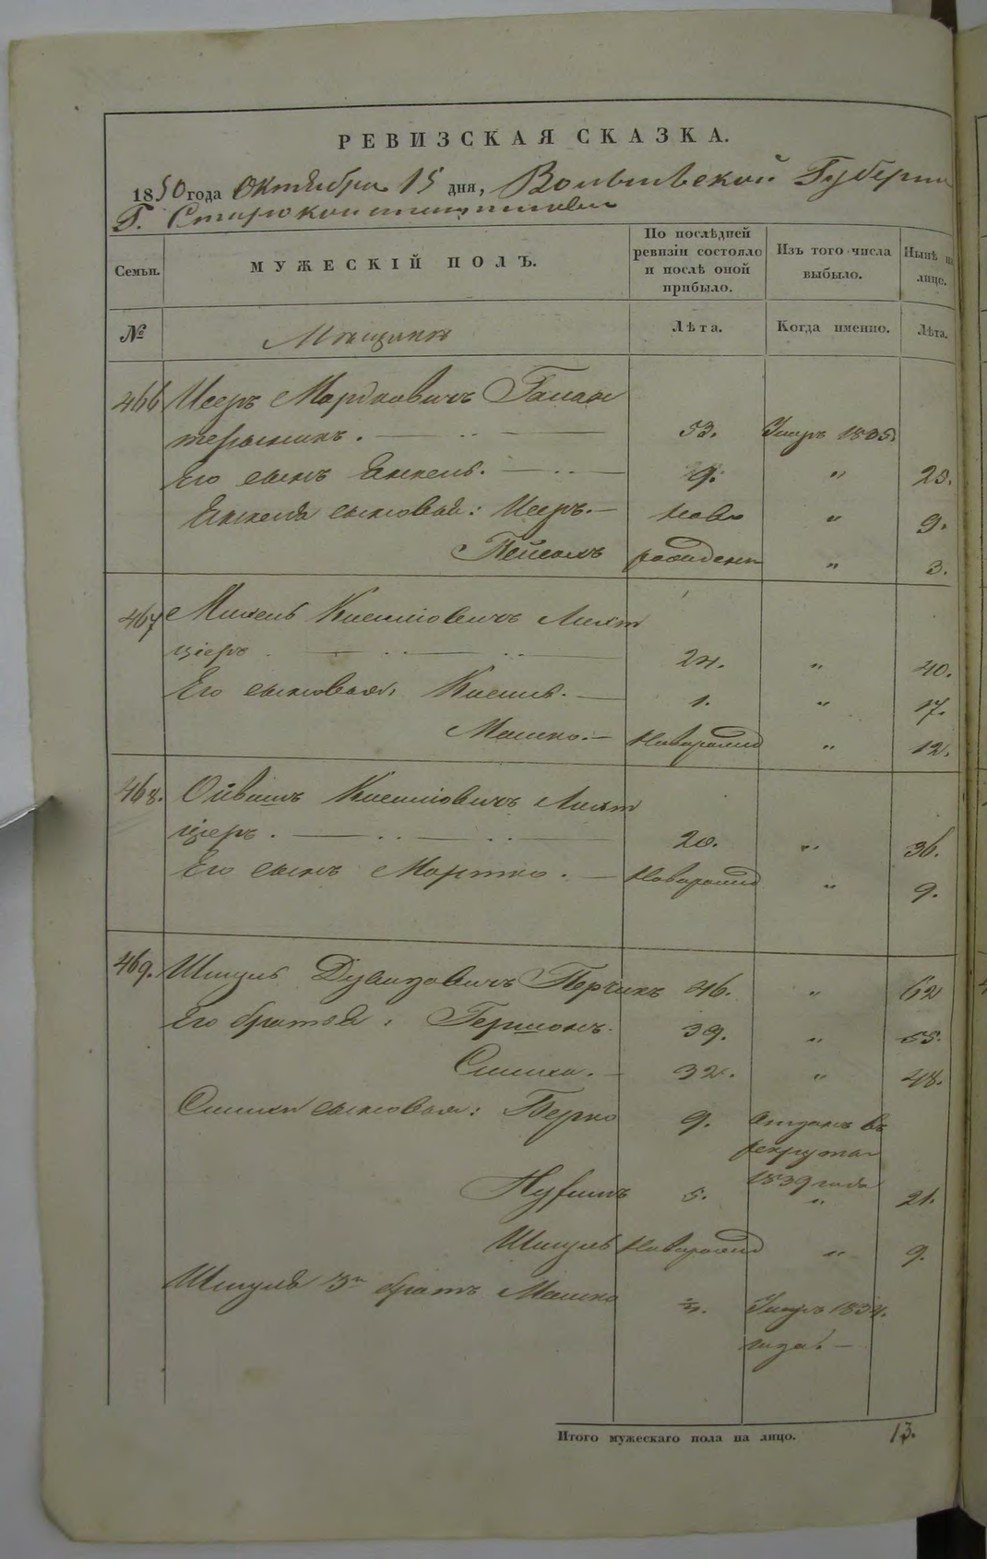 РЕВИЗСКАЯ СКАЗКА.
1850 года Октября 15 дня, Волынской Губернии
Г. Староконстантинова
Семьи. МУЖЕСКІЙ ПОЛЪ. По послѣдней ревизіи состояло и послѣ оной прибыло. Изъ того числа выбыло. Нынѣ на лицо.
№ Мѣщане Лѣта. Когда именно. Лѣта.
466 Исеръ Мордковичъ Галан
терникъ. 53. Умеръ 1835
Его сынъ Янкель. 9. " 25.
Янкеля сыновья: Исеръ. ново " 9.
Пейсахъ рожденн " 3.
467 Михель Кисилiовичъ Лихт
ціеръ 24. " 40.
Его сыновья, Кисиль. 1. " 17.
Мошко. Новорожд " 12.
468. Кисилiовичъ Лихт
ціеръ. 20. " 36.
Его сынъ Мортко. Новорожд " 9.
469. Шмуль Перчикъ 46. " 62
Его братья, Гершонъ. 39. " 55.
Симха. 32. " 48.
Симхи сыновья: Берко 9. отданъ въ
рекруты
1839 года
Нухимъ 5. " 21.
Шмуль Новорожд " 9.
Шмуля 3й братъ Мошко Умеръ 1834.
года.
Итого мужескаго пола на лицо. 13.